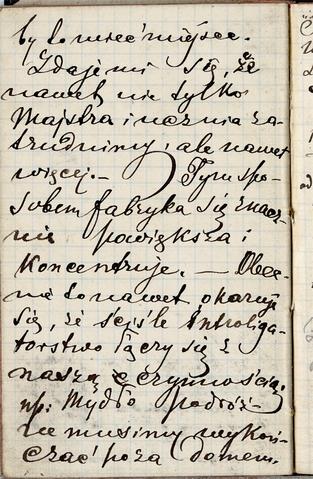 by to mieć miejsce.
Zdaje mi się, że
nawet nie tylko
Majstra i ucznia za-
trudnimy, ale nawet
więcej.— Tym spo-
sobem fabryka się znacz-
nie powiększa i
koncentruje. — Obec-
nie to nawet okazuje
się, że ściśle introliga-
torstwo łączy się z
naszą czynnością,
np: Mydło podróż-
ne musimy wykoń-
czać poza domem.